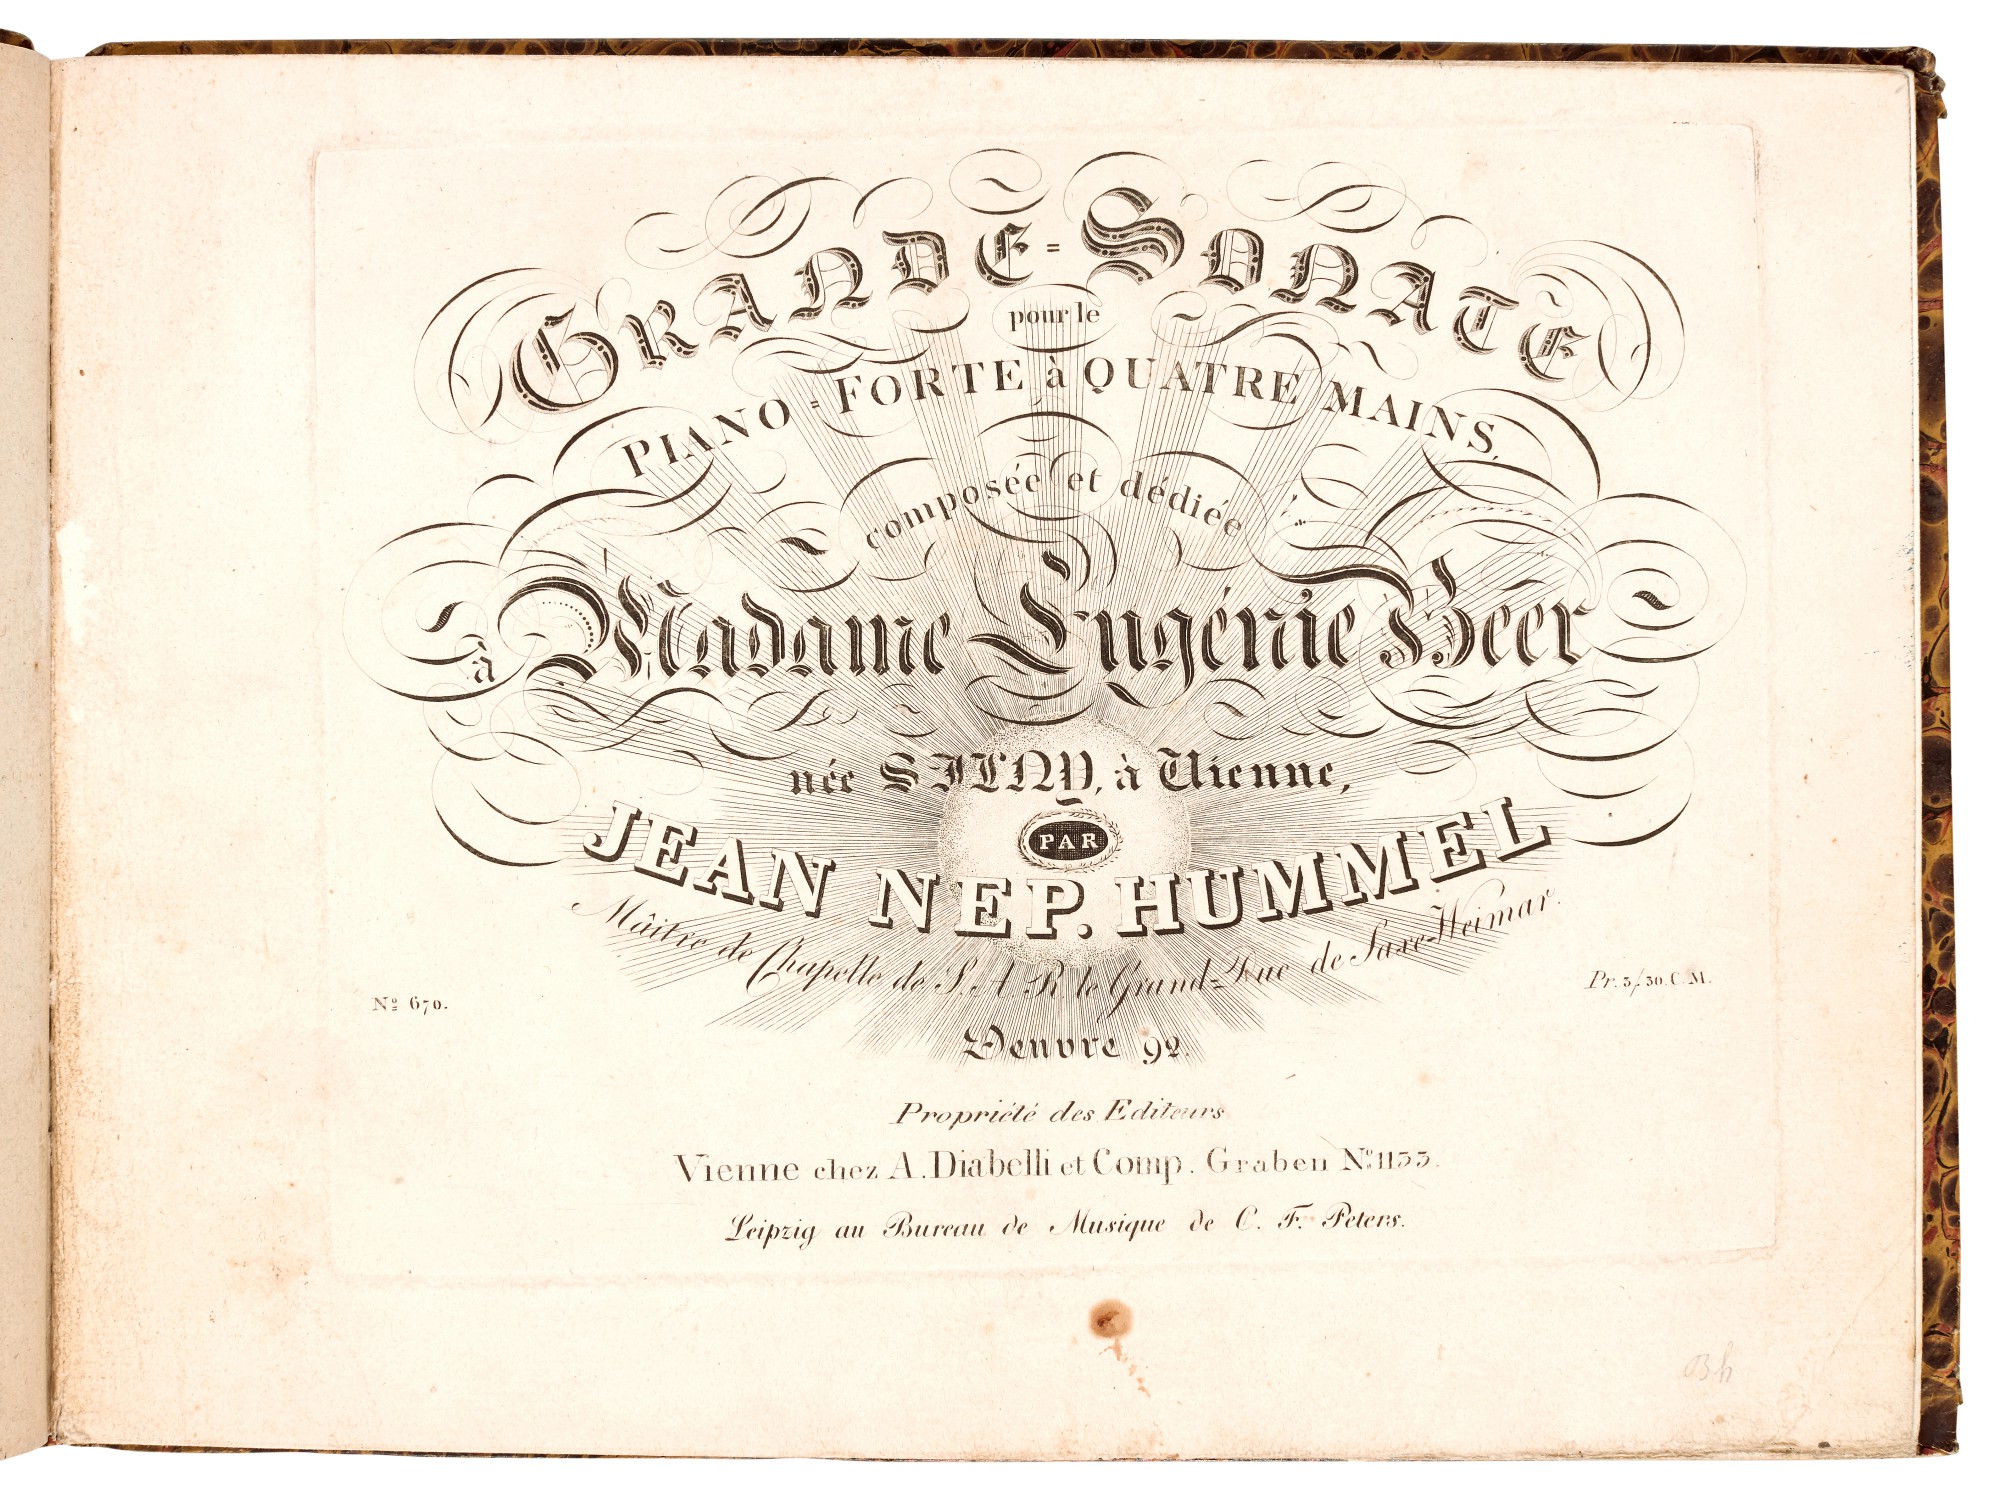 GRANDE=SONATE
pour le
PIANO=FORTE à QUATRE MAINS,
composée et dédiée
à Madame Eugénie Beer
née SILNY, à Vienne,
PAR
JEAN NEP. HUMMEL
Mâitre de Chapelle de S. A. R. le Grand=Duc de Saxe-Weimar.
Nº 670.
Pr. 3f 30. C. M.
Oeuvre 92.
Propriété des Editeurs
Vienne chez A. Diabelli et Comp. Graben Nº 1133.
Leipzig au Bureau de Musique de C. F. Peters.